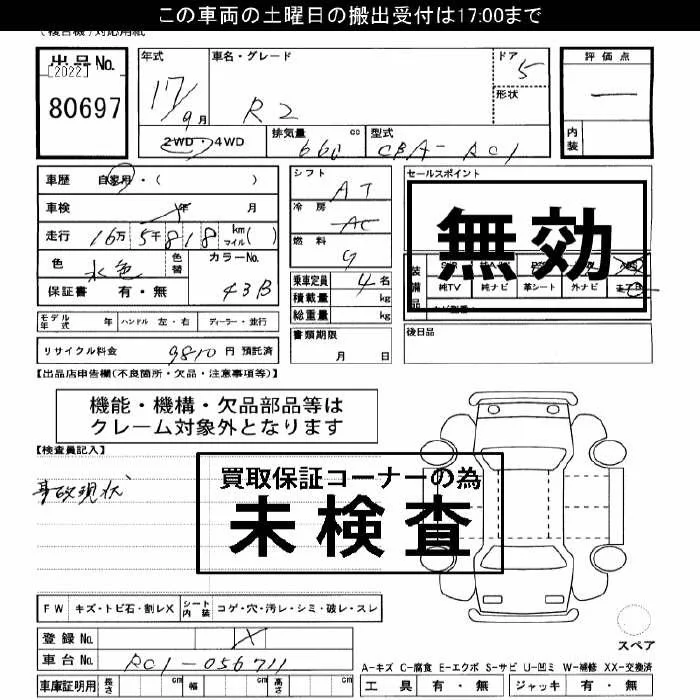 この車両の土曜日の搬出受付は17:00まで
(複合機)対応用紙
出品No.
[2022]
80697
年式
17/9月
車名・グレード
R2
ドア
5
形状
評価点
―
内装
2WD・4WD
排気量
660 cc
型式
CBA-RC1
車歴 自家用・( )
車検 年 月
走行 16万 5千 818 km マイル( )
色 水色
色替
カラーNo.
43B
保証書 有・無
シフト
AT
冷房
AC
燃料
G
乗車定員 4名
積載量 kg
総重量 kg
書類期限
月 日
セールスポイント
無効
装備品
純TV 純ナビ 革シート 外ナビ エアB
後日品
モデル年式 年 ハンドル 左・右 ディーラー・並行
リサイクル料金 9810 円 預託済
【出品店申告欄(不良箇所・欠品・注意事項等)】
機能・機構・欠品部品等は
クレーム対象外となります
【検査員記入】
事故現状
買取保証コーナーの為
未検査
FW キズ・トビ石・割レX
シート内装 コゲ・穴・汚レ・シミ・破レ・スレ
登録No.
車台No. RC1-056711
車庫証明用 長さ cm 幅 cm 高さ cm
スペア
A-キズ C-腐食 E-エクボ S-サビ U-凹ミ W-補修 XX-交換済
工具 有・無 ジャッキ 有・無